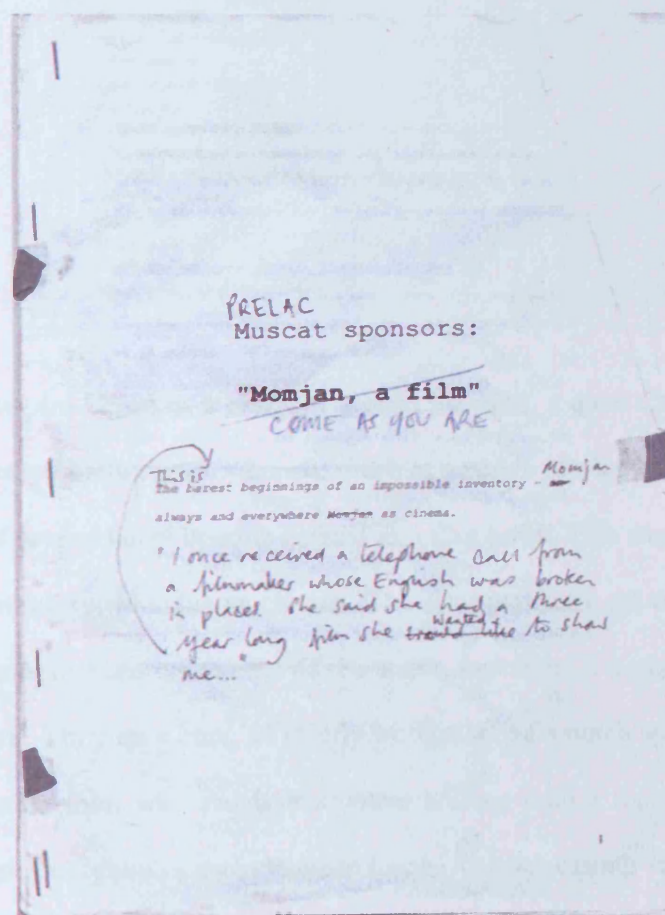 PRELAC
Muscat sponsors:
"Momjan, a film"
COME AS YOU ARE
This is
The barest beginnings of an impossible inventory - Momjan
always and everywhere Momjan as cinema.
"I once received a telephone call from
a filmmaker whose English was broken
in places. She said she had a three
year long film she would like wanted to show
me..."
1